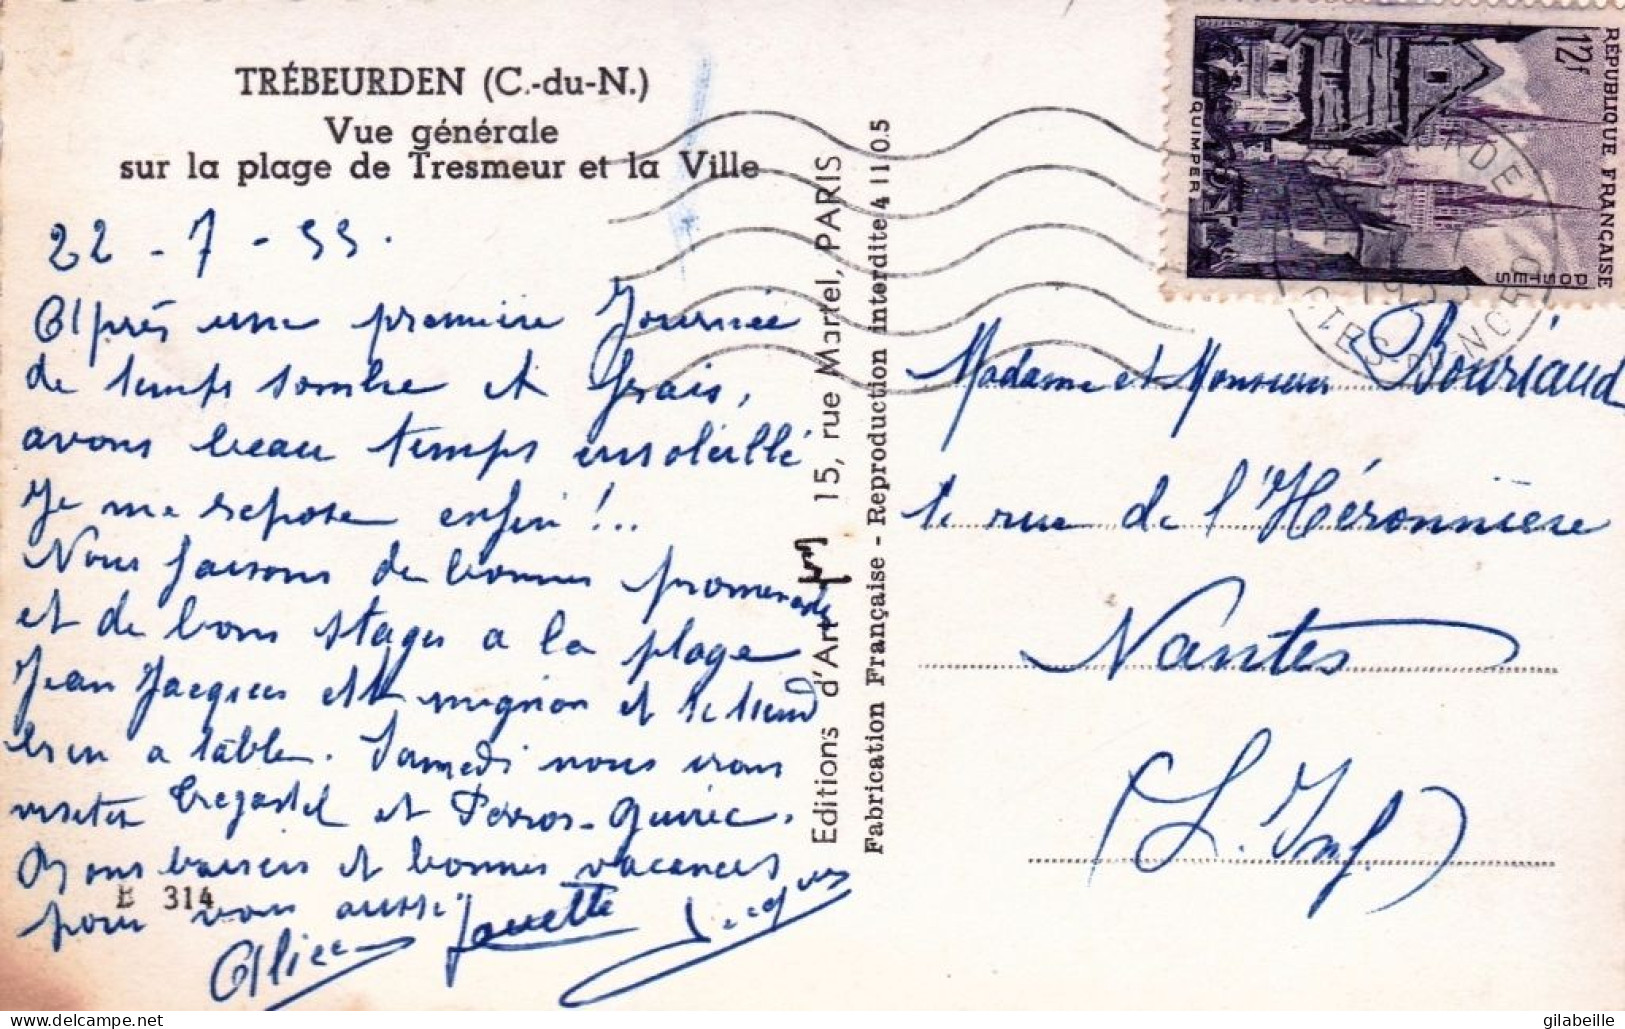 TRÉBEURDEN (C.-du-N.)
Vue générale
sur la plage de Tresmeur et la Ville
22 - 7 - 55.
Après une première Journée
de temps sombre et frais,
avons beau temps ensoleillé
Je me repose enfin !..
Nous faisons de bonnes promenades
et de bons stages a la plage
Jean Jacques est mignon et se tient
bien a table. Samedi nous irons
visiter Tregastel et Perros-Guirec.
Bons baisers et bonnes vacances
pour vous aussi.
B 314
Alice Jouette Jacques
Editions d'Art 15, rue Martel, PARIS
Fabrication Française - Reproduction interdite 4 11 0 5
REPUBLIQUE FRANÇAISE
12f
POSTES
QUIMPER
Madame et Monsieur Bouriaud
1 rue de l'Héronnière
Nantes
(L. Inf.)
gilabeille